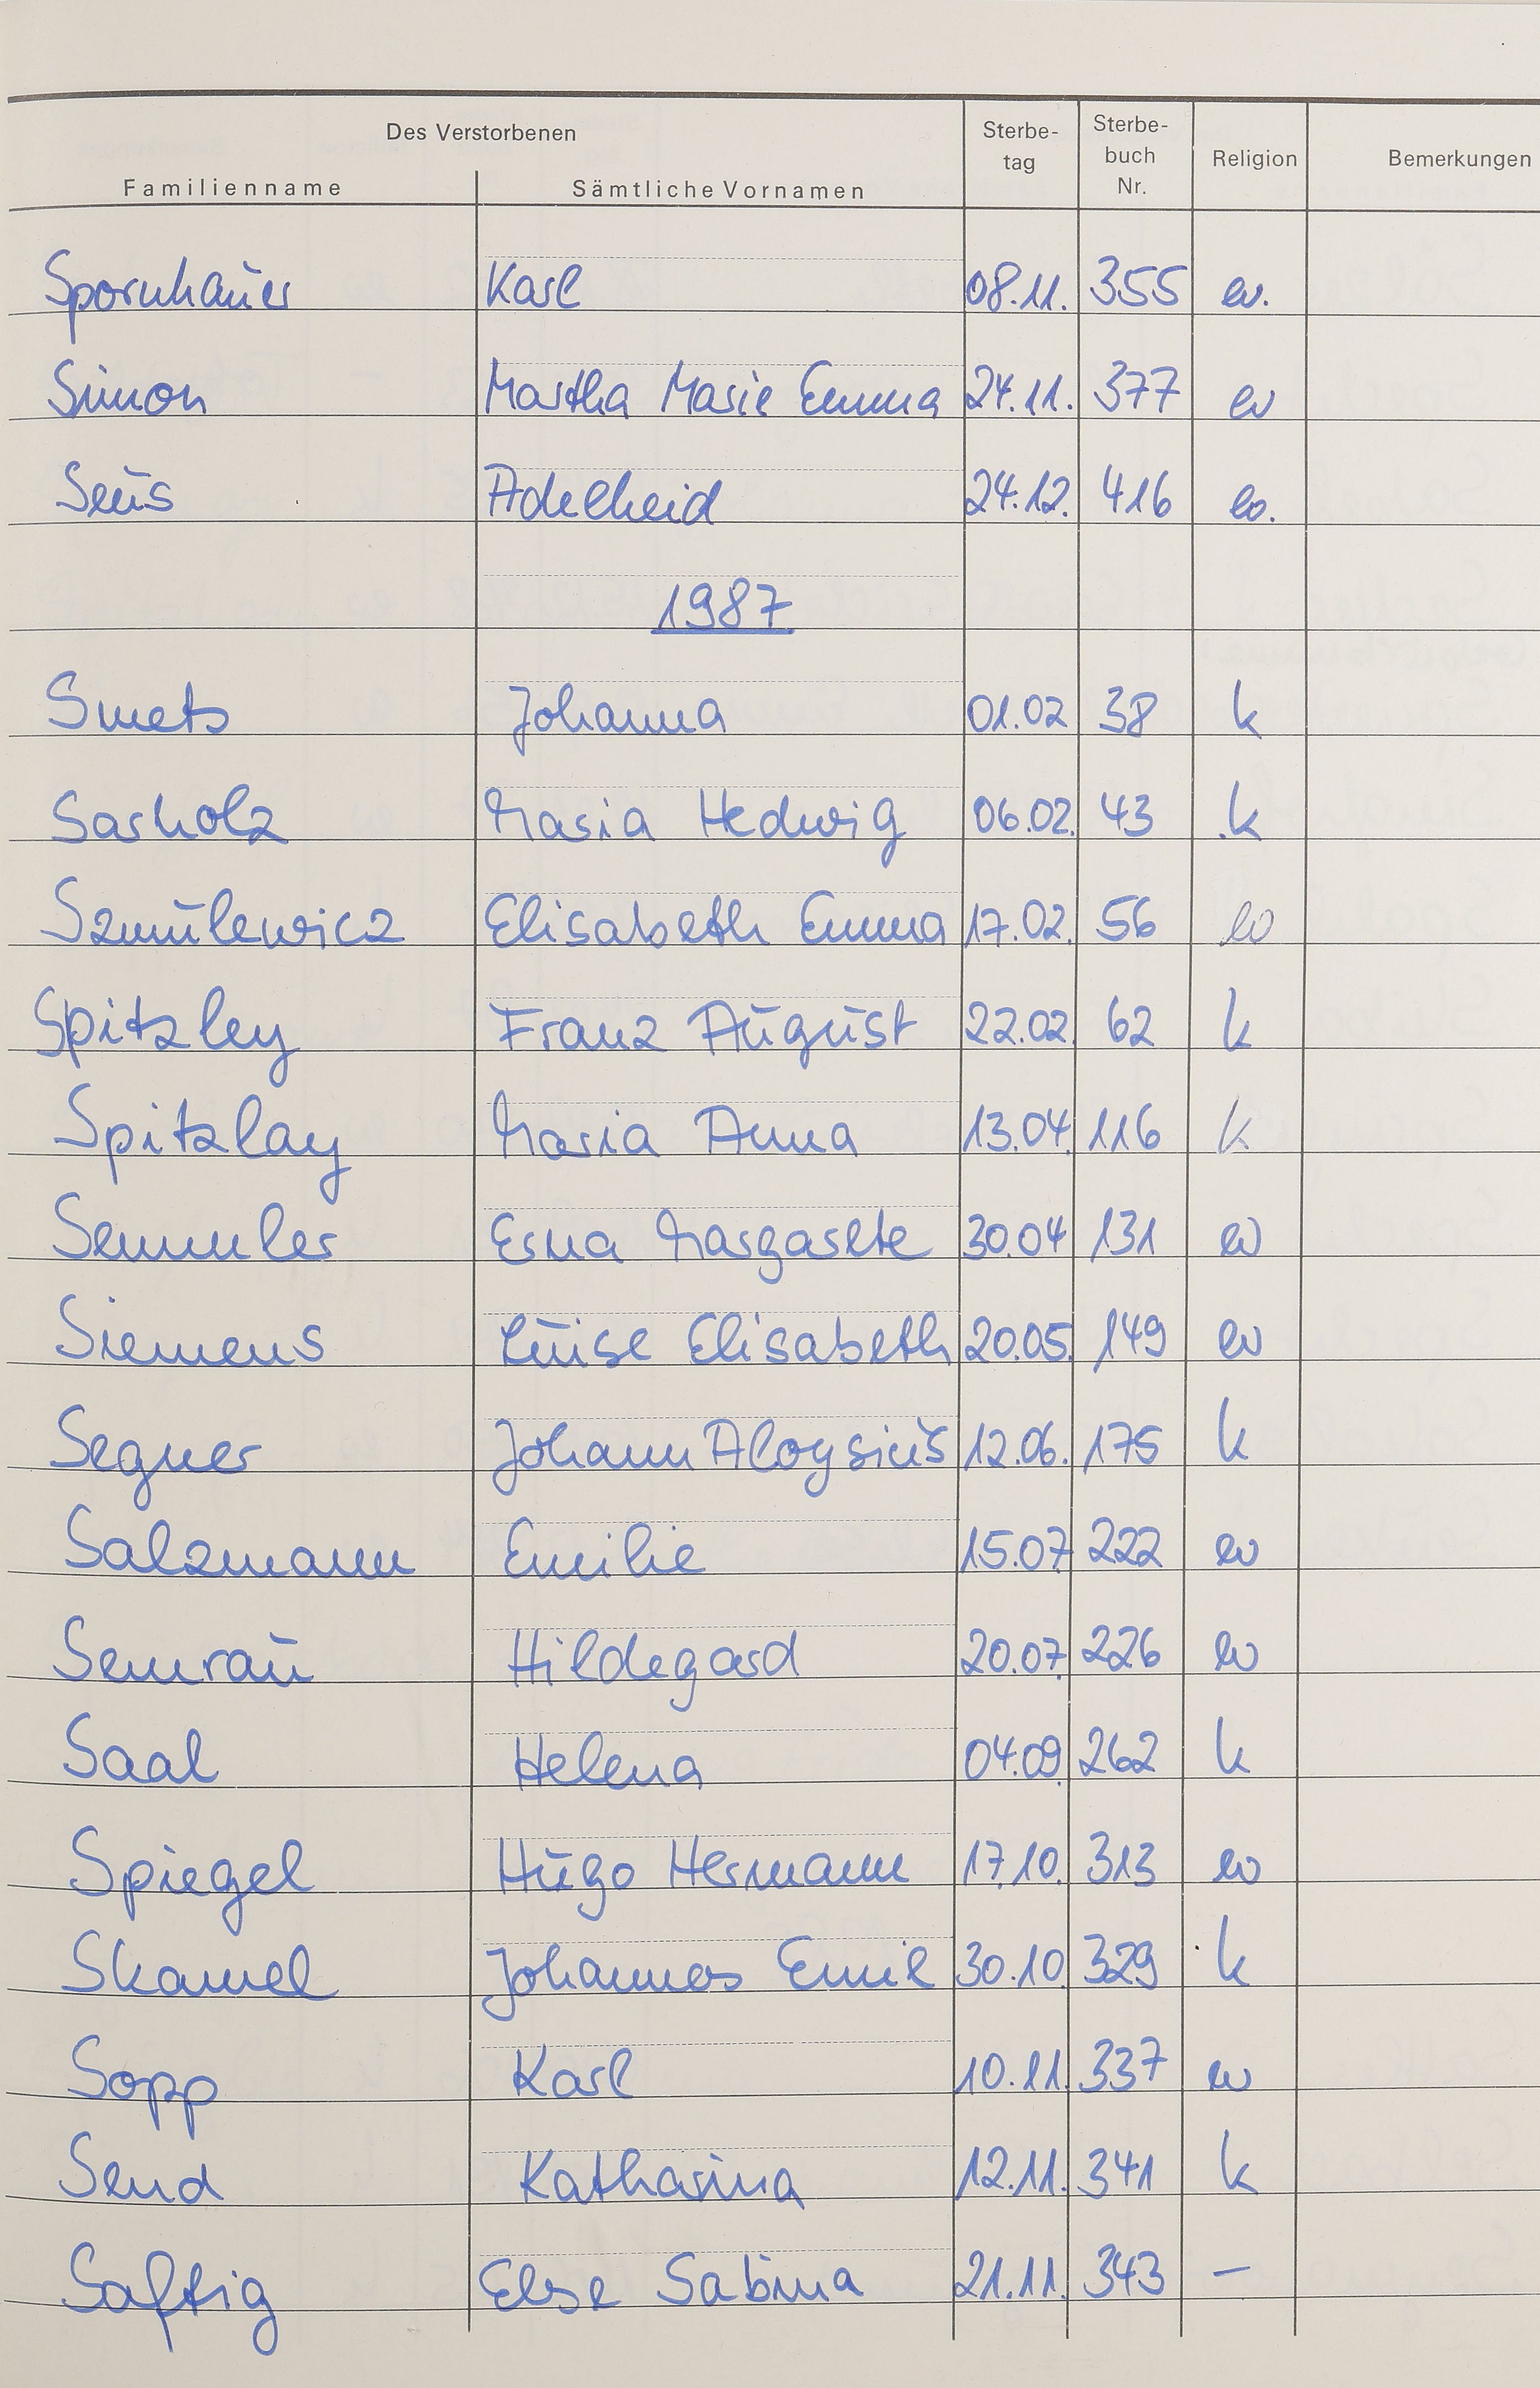 Des Verstorbenen
Familienname Sämtliche Vornamen Sterbe-tag Sterbe-buch Nr. Religion Bemerkungen
Spornhauer Karl 08.11. 355 ev.
Simon Martha Marie Emma 24.11. 377 ev
Seus Adelheid 24.12. 416 ev.
1987
Smets Johanna 01.02 38 k
Sarholz Maria Hedwig 06.02. 43 k
Szmulewicz Elisabeth Emma 17.02. 56 ev
Spitzley Franz August 22.02. 62 k
Spitzlay Maria Anna 13.04. 116 k
Semmler Erna Margarete 30.04 131 ev
Siemens Luise Elisabeth 20.05. 149 ev
Segner Johann Aloysius 12.06. 175 k
Salzmann Emilie 15.07 222 ev
Semrau Hildegard 20.07. 226 ev
Saal Helena 04.09. 262 k
Spiegel Hugo Hermann 17.10. 313 ev
Skamel Johannes Emil 30.10. 329 k
Sopp Karl 10.11. 337 ev
Send Katharina 12.11. 341 k
Saftig Else Sabina 21.11. 343 –